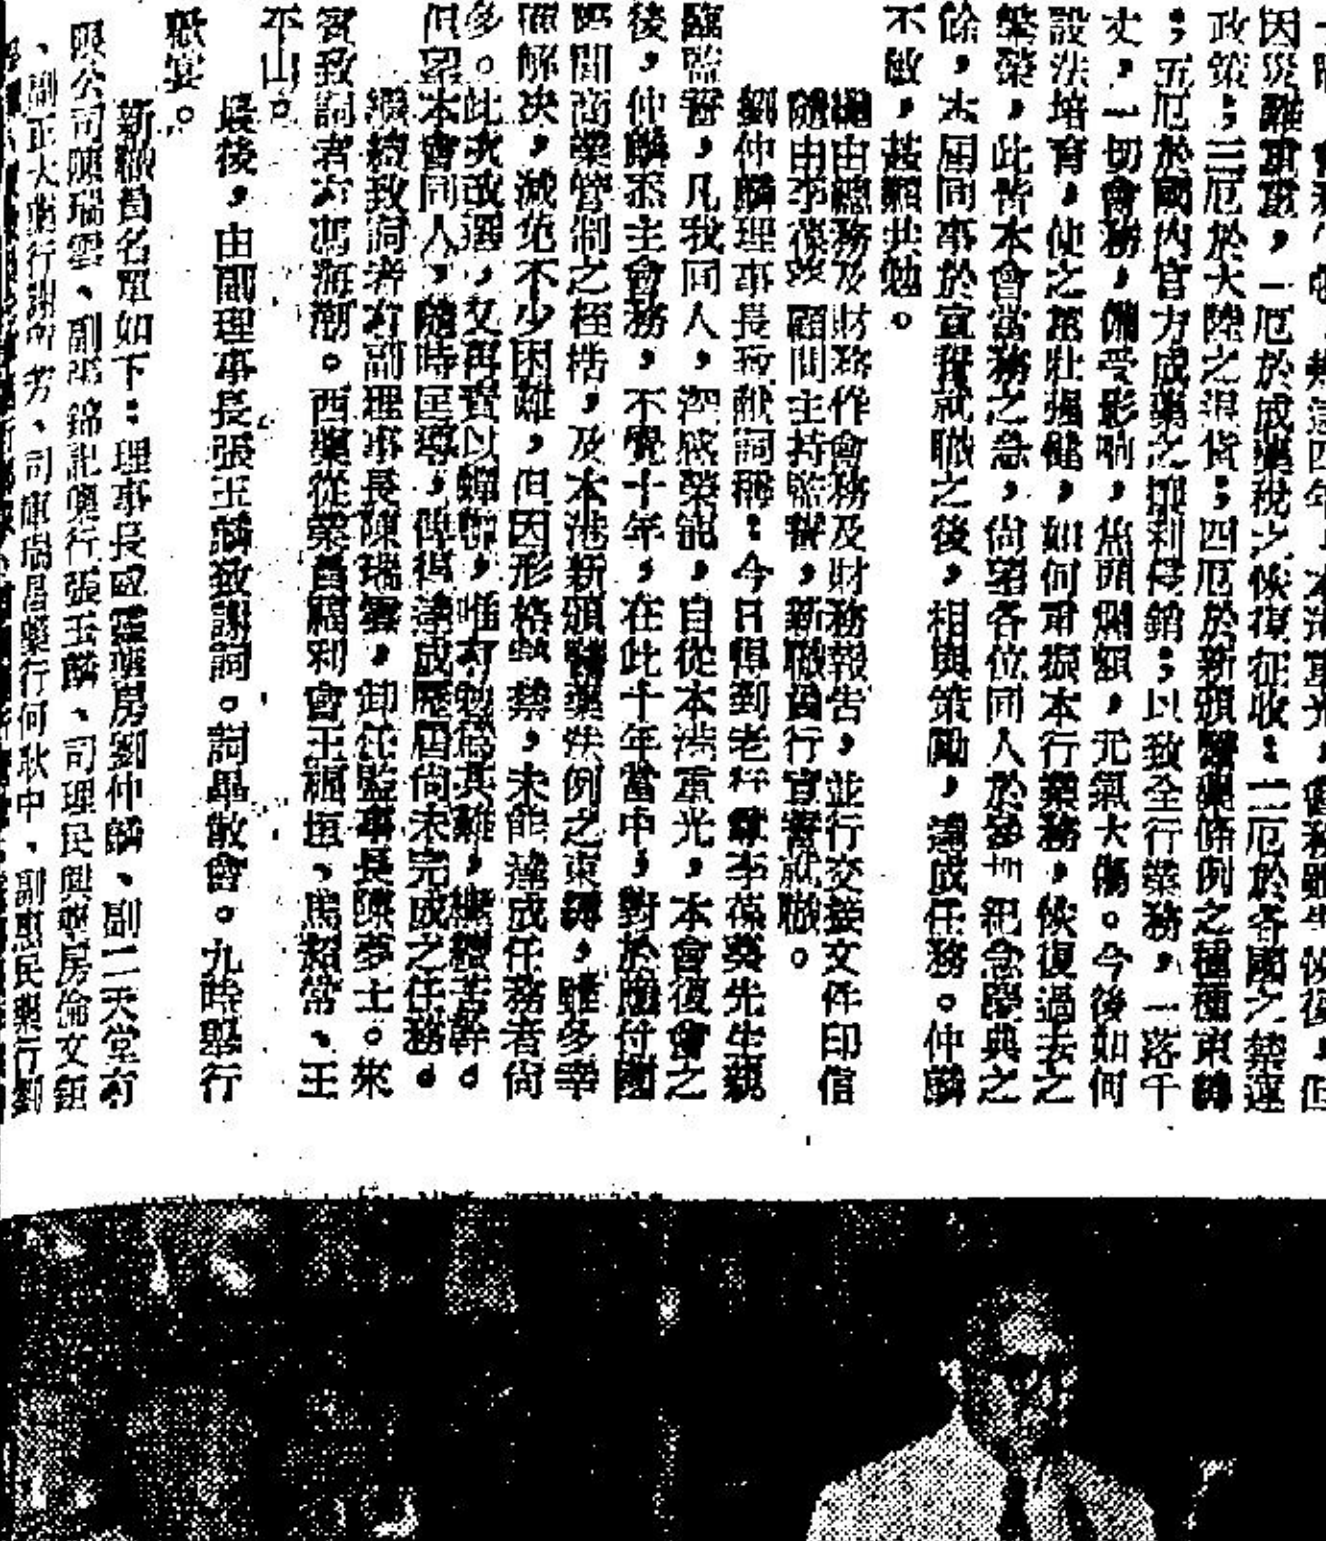 因災難重重，一厄於成藥稅之恢復征收；二厄於各國之禁運
政策；三厄於大陸之退貨；四厄於新頒醫藥條例之種種束縛
；五厄於國內官方成藥之爭利傾銷；以致全行業務，一落千
丈，一切會務，備受影响，焦頭爛額，元氣大傷。今後如何
設法培育，使之茁壯強健，如何重振本行業務，恢復過去之
繁榮，此皆本會當務之急，尚望各位同人於參加紀念慶典之
餘，本屆同事於宣誓就職之後，相與策勵，達成任務。仲麟
不敏，甚願共勉。
繼由總務及財務作會務及財務報告，並行交接文件印信
隨由李葆葵顧問主持監誓，新職員行宣誓就職。
劉仲麟理事長致献詞稱：今日得到老杯李葆葵先生親
臨監誓，凡我同人，深感榮寵，自從本港重光，本會復會之
後，仲麟忝主會務，不覺十年，在此十年當中，對於應付國
際間商業管制之桎梏，及本港新頒醫藥法例之束縛，雖多幸
而解决，減免不少困難，但因形格勢禁，未能達成任務者尚
多。此次改選，又再責以蟬聯，唯有勉為其難，繼續苦幹。
但望本會同人，隨時匡導，俾得達成歷屆尚未完成之任務。
繼續致詞者有副理事長陳瑞雲，卸任監事長陳夢士。來
賓致詞者有馮海潮。西藥從業員福利會王楓垣、馬超常、王
不山。
最後，由副理事長張玉麟致謝詞。詞畢散會。九時舉行
歡宴。
新職員名單如下：理事長威靈藥房劉仲麟、副二天堂有
限公司陳瑞雲、副張錦記藥行張玉麟、司理民興藥房倫文鈿
、副正大藥行、司庫瑞昌藥行何耿中、副惠民藥行劉